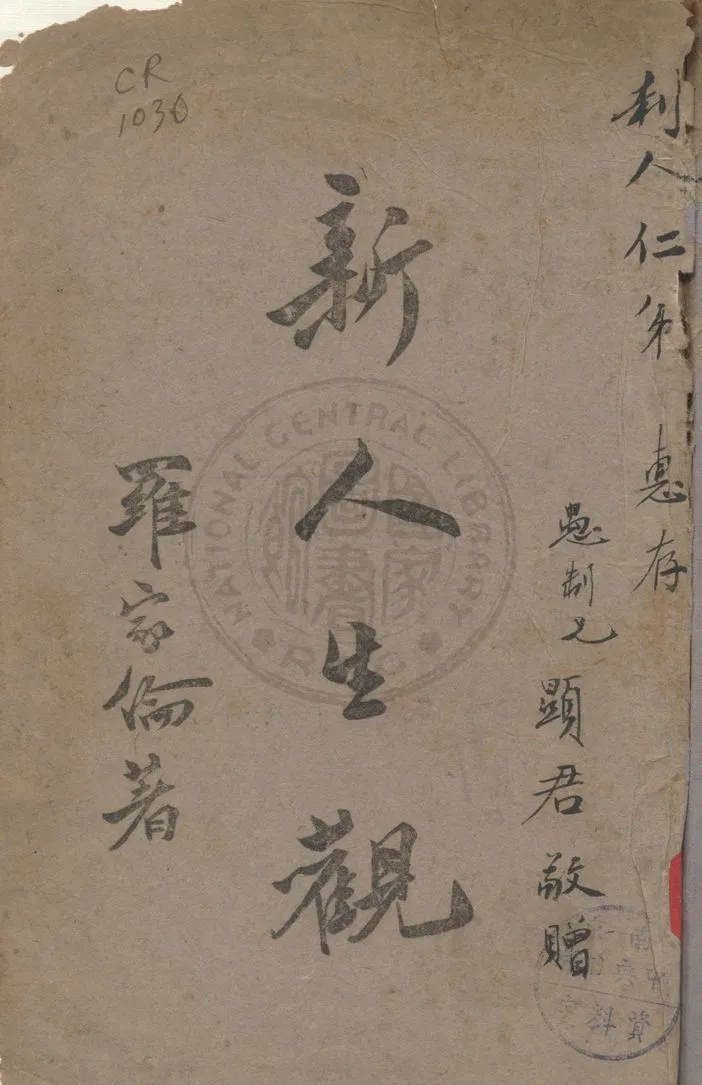 CR
1030
利人仁弟 惠存
愚制兄 顯君敬贈
新人生觀
羅家倫著
NATIONAL CENTRAL LIBRARY
國家圖書館
資料